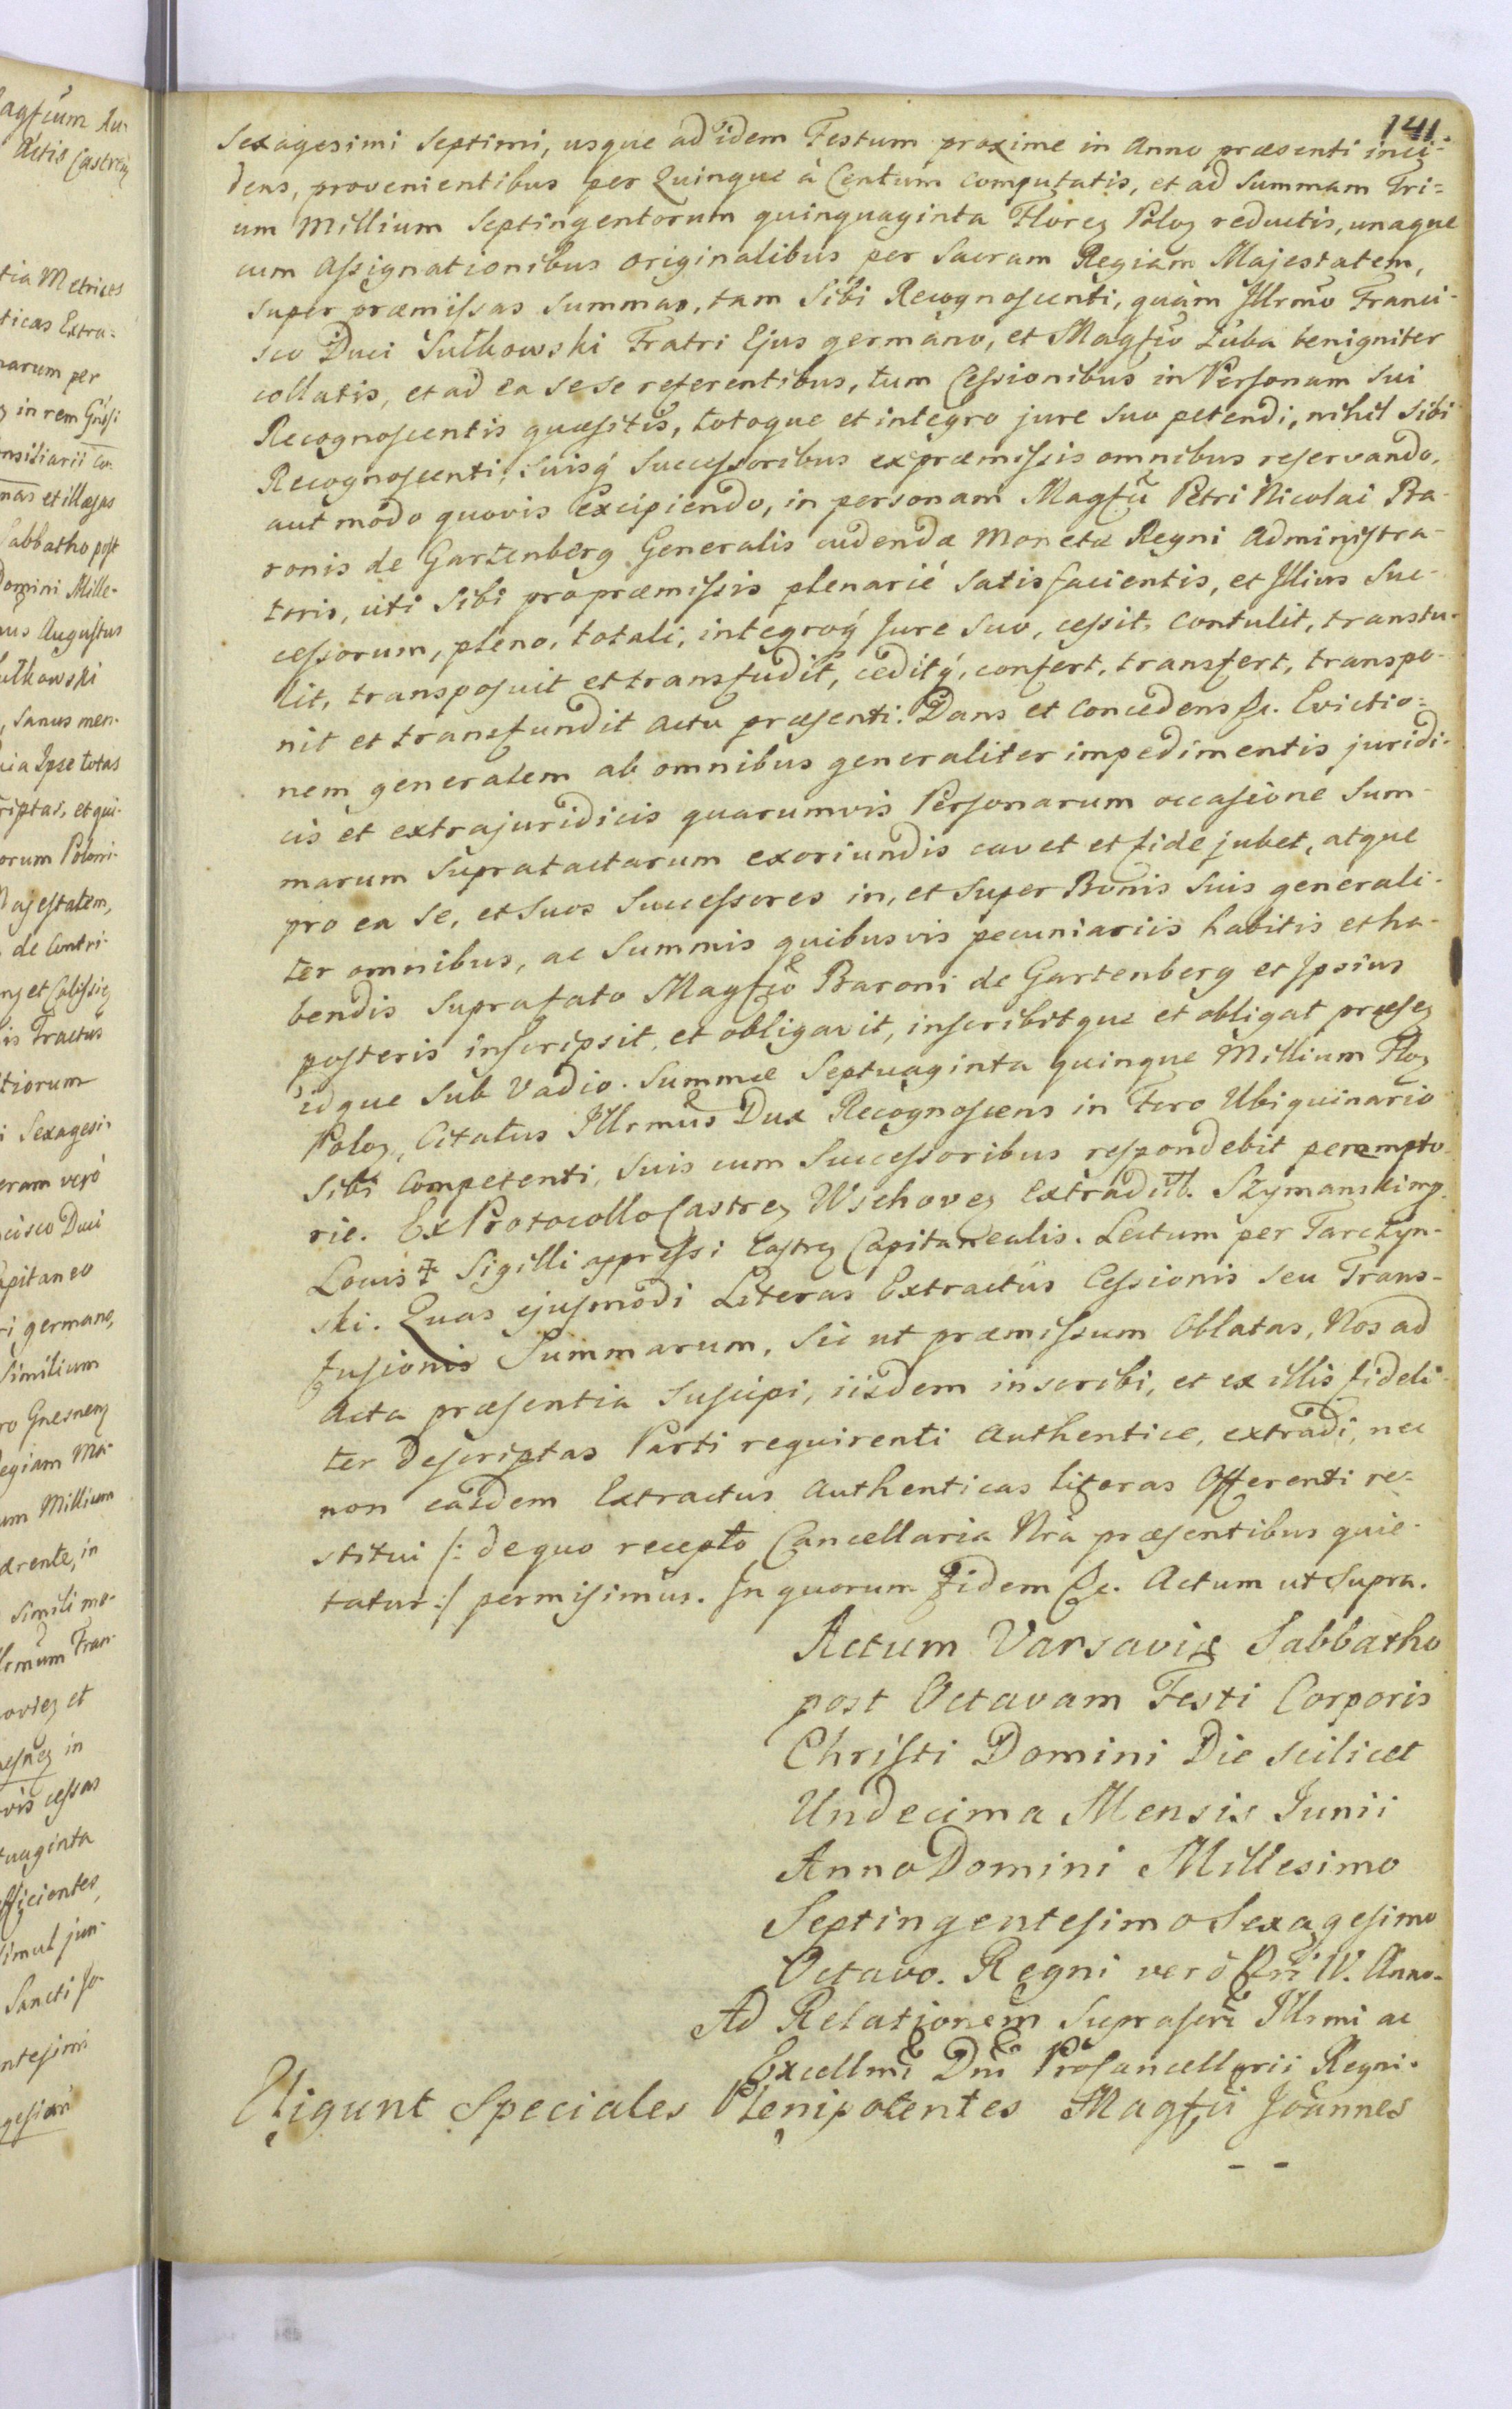 141.
Sexagesimi Septimi, usque ad idem Festum proxime in Anno præsenti inci-
dens, provenientibus per Quinque à Centum computatis, et ad Summam Tri=
um Millium Septingentorum quinquaginta Floreꝫ Poloꝫ reductis, unaque
cum Assignationibus originalibus per Sacram Regiam Majestatem,
super præmissas Summas, tam Sibi Recognoscenti, quàm Illrm̃o Franci-
sco Duci Sułkowski Fratri Ejus germano, et Magfc̃o Łuba benigniter
collatis, et ad ea sese referentibus, tum Cessionibus in Personam sui
Recognoscentis quæsitis, totoque et integro jure suo petendi, nihil Sibi
Recognoscenti, suisq́ Successoribus ex præmissis omnibus reservando,
aut modo quovis excipiendo, in personam Magfc̃i Petri Nicolai Ba-
ronis de Gartenberg Generalis cudendæ Monetæ Regni Administra-
toris, uti Sibi pro præmissis plenariè Satisfacientis, et Illius Suc-
cessorum, pleno, totali, integroq́ Jure suo, cessit, contulit, transtu-
lit, transposuit et transfudit, ceditq́, confert, transfert, transpo-
nit et transfundit actu præsenti. Dans et Concedens &c. Evictio=
nem generalem ab omnibus generaliter impedimentis juridi-
cis et extrajuridicis quarumvis Personarum occasione Sum-
marum supratactarum exoriundis cavet et fide jubet, atque
pro ea se, et suos Successores in, et super Bonis suis generali-
ter omnibus, ac Summis quibusvis pecuniariis habitis et ha-
bendis suprafato Magfc̃o Baroni de Gartenberg et Ipsius
posteris inscripsit, et obligavit, inscribitque et obligat præseꝫ
idque sub Vadio. Summæ Septuaginta quinque Millium Floꝫ
Poloꝫ, Citatus Illrm̃us Dux Recognoscens in Foro Ubiquinario
sibi Competenti, suis cum Successoribus respondebit perempto-
rie. Ex Protocollo Castreꝫ Wschoveꝫ Extradit. Szymanski mp.
Locus ☩ Sigilli appressi Castreꝫ Capitanealis. Lectum per Tarczyn-
ski. Quas ejusmodi Literas Extractûs Cessionis seu Trans-
fusionis Summarum, sic ut præmissum Oblatas, Nos ad
Acta præsentia Suscipi, iisdem inscribi, et ex illis fideli-
ter descriptas Parti requirenti Authentice, extradi, nec
non easdem Extractus Authenticas literas Offerenti re-
stitui /: de quo recepto Cancellaria Nr̃a præsentibus quie-
tatur :/ permisimus. In quorum fidem &c. Actum ut supra.
Actum Varsaviæ Sabbatho
post Octavam Festi Corporis
Christi Domini Die scilicet
Undecima Mensis Junii
Anno Domini Millesimo
Septingentesimo Sexagesimo
Octavo. Regni verò Nr̃i IV. Anno.
Ad Relationem Suprascri Illrm̃i ac
Excellm̃i Dn̄i Procancellarii Regni.
Eligunt Speciales Plenipotentes Magfc̃i Joannes